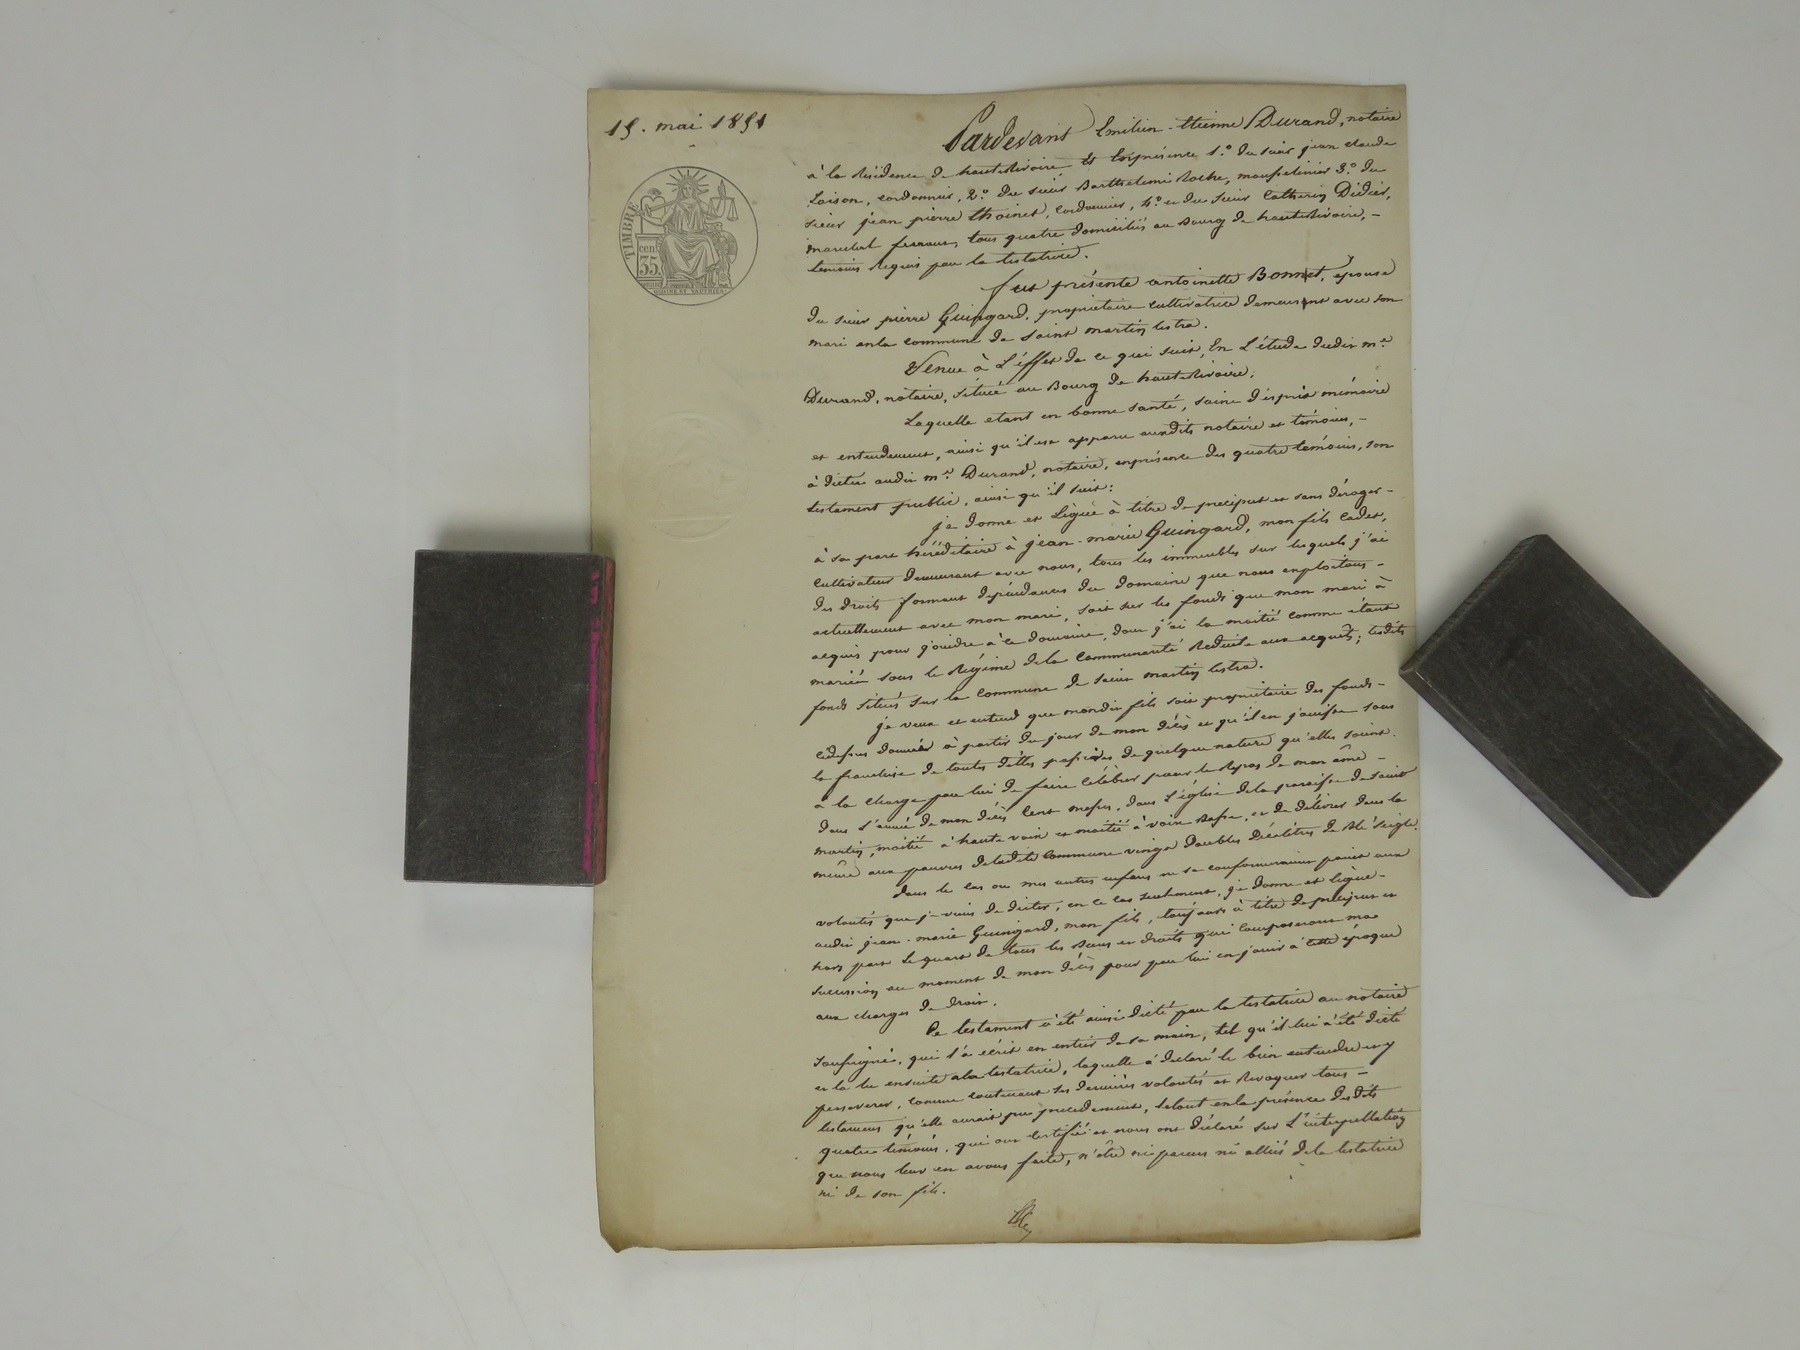 15. mai 1851
TIMBRE
35
cen
Pardevant Emilien-Etienne Durand, notaire
à la Résidence de hauteRivoire et En présence 1.° du sieur jean claude
Loison, cordonnier, 2.° du sieur Barthelemi Roche, 3.° du
sieur jean pierre thoinet, Cordonnier, 4.° et du sieur Catherin Didier,
marechal ferrant, tous quatre domiciliés au Bourg de hauteRivoire, -
temoins Requis par la testatrice.
fut présente antoinette Bonnet, épouse
du sieur pierre Guingard, propriétaire cultivatrice demeurant avec son
mari en la commune de saint martin lestra.
Venue à L'effet de ce qui suit, En L'étude dudit m.e
Durand, notaire, située au Bourg de hauteRivoire;
Laquelle etant en bonne santé, saine d'esprit mémoire
et entendement, ainsi qu'il est apparu auxdits notaire et témoins, -
à dictée audit m.e Durand, notaire, en présence des quatre temoins, son
testament public, ainsi qu'il suit:
je donne et Lègue à titre de preciput et sans déroger -
à sa part héréditaire à jean-marie Guingard, mon fils cadet,
Cultivateur demeurant avec nous, tous les immeubles sur lesquels j'ai
des droits formant dépendances du domaine que nous exploitons -
actuellement avec mon mari, soit sur les fonds que mon mari à
acquis pour joindre à ce domaine, dont j'ai la moitié comme étant
mariée sous le Régime de la Communauté Réduite aux acquêts; lesdits
fonds situés sur la Commune de saint martin lestra.
je veux et entend que mondit fils soit propriétaire des fonds -
cidessus donnés à partir du jour de mon décès et qu'il en jouisse sous
la franchise de toutes dettes passives de quelque nature qu'elles soient.
à la charge par lui de faire célébrer pour le Repos de mon âme -
dans L'année de mon décès Cent messes, dans L'église de la paroisse de saint
martin, moitié à haute voix et moitié à voix Basse, et de délivrer dans la
même aux pauvres de ladite Commune vingt doubles Décalitres de Blé seigle.
dans le cas ou mes autres enfans ne se conformeraient point aux
volontés que je viens de dicter, en ce cas seulement, je donne et lègue -
audit jean-marie Guingard, mon fils, toujours à titre de preciput et
hors part le quart de tous les Biens et droits qui composeront ma
sucession au moment de mon décès pour par lui en jouir à cette époque
aux charges de droit.
Ce testament à été ainsi dicté par la testatrice au notaire
soussigné, qui l'à écrit en entier de sa main, tel qu'il lui à été dicté
et la lu ensuite a la testatrice, laquelle à déclaré le bien entendre et y
perseverer, comme contenant ses dernières volontés et Revoquer tous -
testamens qu'elle aurait pu precedemment, le tout en la présence desdits
quatre témoins, qui ont certifié et nous ont déclaré sur L'interpellation
que nous leur en avons faite, n'être ni parens ni alliés de la testatrice
ni de son fils.